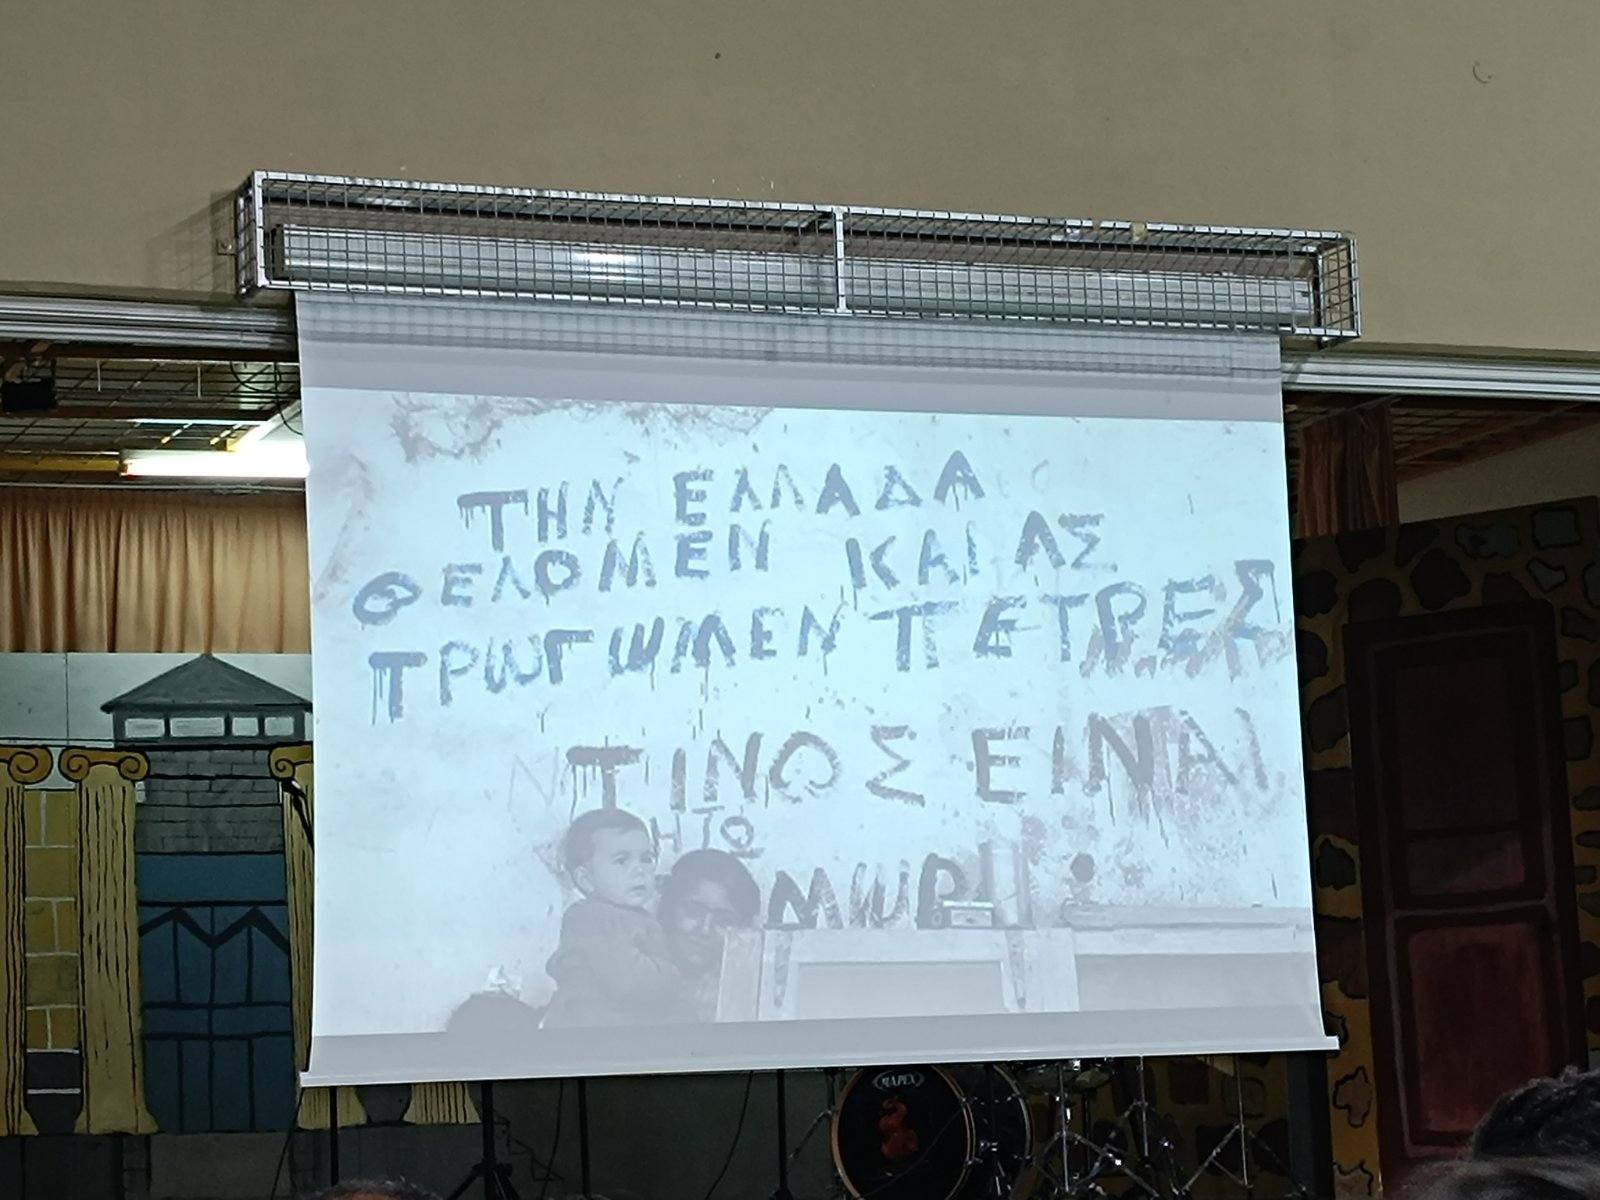 ΤΗΝ ΕΛΛΑΔΑ
ΘΕΛΟΜΕΝ ΚΑΙ ΑΣ
ΤΡΩΓΩΜΕΝ ΠΕΤΡΕΣ
ΤΙΝΟΣ ΕΙΝΑΙ
ΜΩΡ
MAPEX